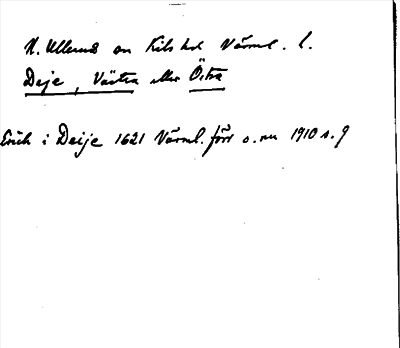 N. Ullerud sn Kils hd Värml. l.
Deje, Västra eller Östra
Erich i Deije 1621 Värml. förr o. nu 1910 s. 9